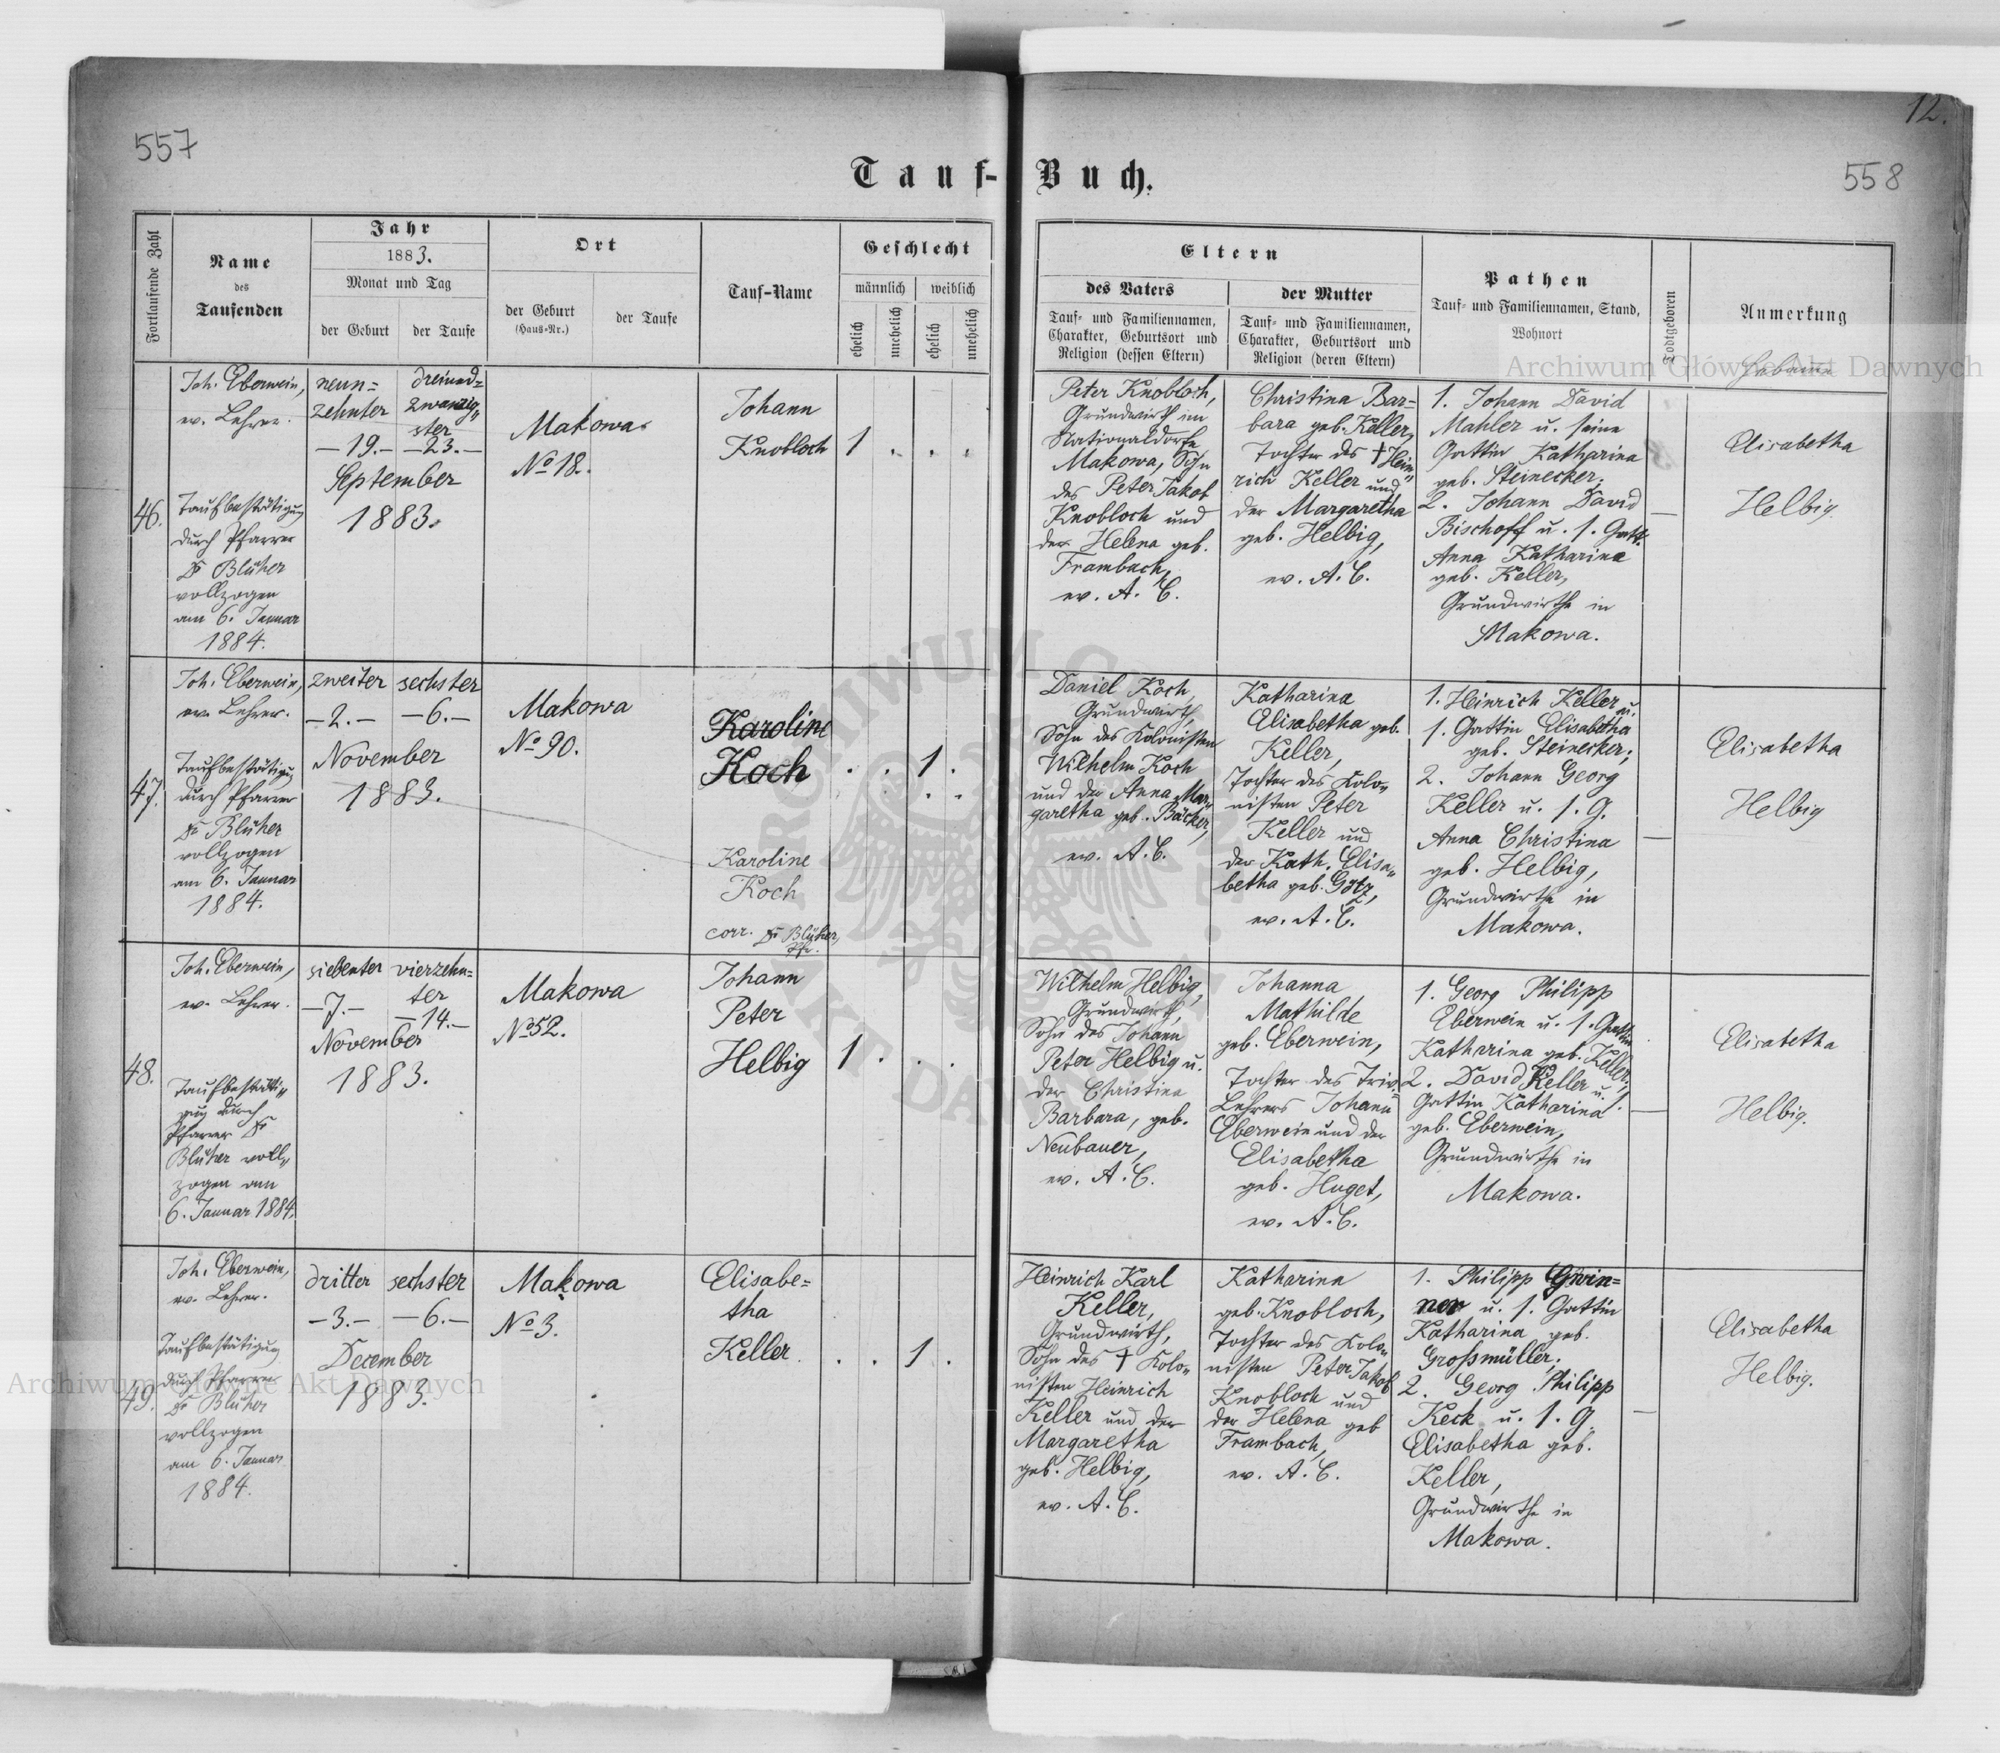 12.
557
558
Tauf-Buch.
Fortlaufende Zahl
Name
des
Taufenden
Jahr
1883.
Monat und Tag
der Geburt
der Taufe
Ort
der Geburt
(Haus-Nr.)
der Taufe
Tauf-Name
Geschlecht
männlich
weiblich
ehelich
unehelich
ehelich
unehelich
Eltern
des Vaters
Tauf- und Familiennamen,
Charakter, Geburtsort und
Religion (dessen Eltern)
der Mutter
Tauf- und Familiennamen,
Charakter, Geburtsort und
Religion (deren Eltern)
Pathen
Tauf- und Familiennamen, Stand,
Wohnort
Todtgeboren
Anmerkung
Hebamme
Archiwum Główne Akt Dawnych
46.
Joh. Eberwein,
ev. Lehrer.
Taufbestätigung
durch Pfarrer
Dr Blüher
vollzogen
am 6. Januar
1884.
neun=
zehnter
—19.—
dreiund=
zwanzig„
ster
—23.—
September
1883.
Makowa
No 18.
Johann
Knobloch
1 . . .
Peter Knobloch,
Grundwirth im
Nationaldorfe
Makowa, Sohn
des Peter Jakob
Knobloch und
der Helena geb.
Frambach,
ev. A. C.
Christina Bar=
bara geb. Keller,
Tochter des † Hein„
rich Keller und
der Margaretha
geb. Helbig,
ev. A. C.
1. Johann David
Mahler u. seine
Gattin Katharina
geb. Steinecker;
2. Johann David
Bischoff u. s. Gatt.
Anna Katharina
geb. Keller,
Grundwirthe in
Makowa.
—
Elisabetha
Helbig.
47.
Joh. Eberwein,
ev. Lehrer.
Taufbestätigung
durch Pfarrer
Dr Blüher
vollzogen
am 6. Januar
1884.
zweiter
—2.—
sechster
—6.—
November
1883.
Makowa
No 90.
Karoline
Koch
Karoline
Koch
corr. Dr Blüher,
Pfr.
. . 1 .
. .
Daniel Koch,
Grundwirth,
Sohn des Kolonisten
Wilhelm Koch
und der Anna Mar„
garetha geb. Bäcker,
ev. A. C.
Katharina
Elisabetha geb.
Keller,
Tochter des Kolo„
nisten Peter
Keller und
der Kath. Elisa„
betha geb. Götz,
ev. A. C.
1. Heinrich Keller u.
s. Gattin Elisabetha
geb. Steinecker;
2. Johann Georg
Keller u. s. G.
Anna Christina
geb. Helbig,
Grundwirthe in
Makowa.
—
Elisabetha
Helbig
48.
Joh. Eberwein,
ev. Lehrer.
Taufbestäti„
gung durch
Pfarrer Dr
Blüher voll„
zogen am
6. Januar 1884.
siebenter
—7.—
vierzehn=
ter
—14.—
November
1883.
Makowa
No 52.
Johann
Peter
Helbig
1 . . .
Wilhelm Helbig,
Grundwirth,
Sohn des Johann
Peter Helbig u.
der Christina
Barbara, geb.
Neubauer,
ev. A. C.
Johanna
Mathilde
geb. Eberwein,
Tochter des Triv.
Lehrers Johann
Eberwein und der
Elisabetha
geb. Huget,
ev. A. C.
1. Georg Philipp
Eberwein u. s. Gattin
Katharina geb. Keller;
2. David Keller u. s.
Gattin Katharina
geb. Eberwein,
Grundwirthe in
Makowa.
—
Elisabetha
Helbig.
49.
Joh. Eberwein,
ev. Lehrer.
Taufbestätigung
durch Pfarrer
Dr Blüher
vollzogen
am 6. Januar
1884.
dritter
—3.—
sechster
—6.—
December
1883.
Makowa
No 3.
Elisabe=
tha
Keller.
. . 1 .
Heinrich Karl
Keller,
Grundwirth,
Sohn des † Kolo„
nisten Heinrich
Keller und der
Margaretha
geb. Helbig,
ev. A. C.
Katharina
geb. Knobloch,
Tochter des Kolo„
nisten Peter Jakob
Knobloch und
der Helena geb
Frambach,
ev. A. C.
1. Philipp Gwin=
ner u. s. Gattin
Katharina geb.
Großmüller;
2. Georg Philipp
Keck u. s. G.
Elisabetha geb.
Keller,
Grundwirthe in
Makowa.
—
Elisabetha
Helbig.
Archiwum Główne Akt Dawnych